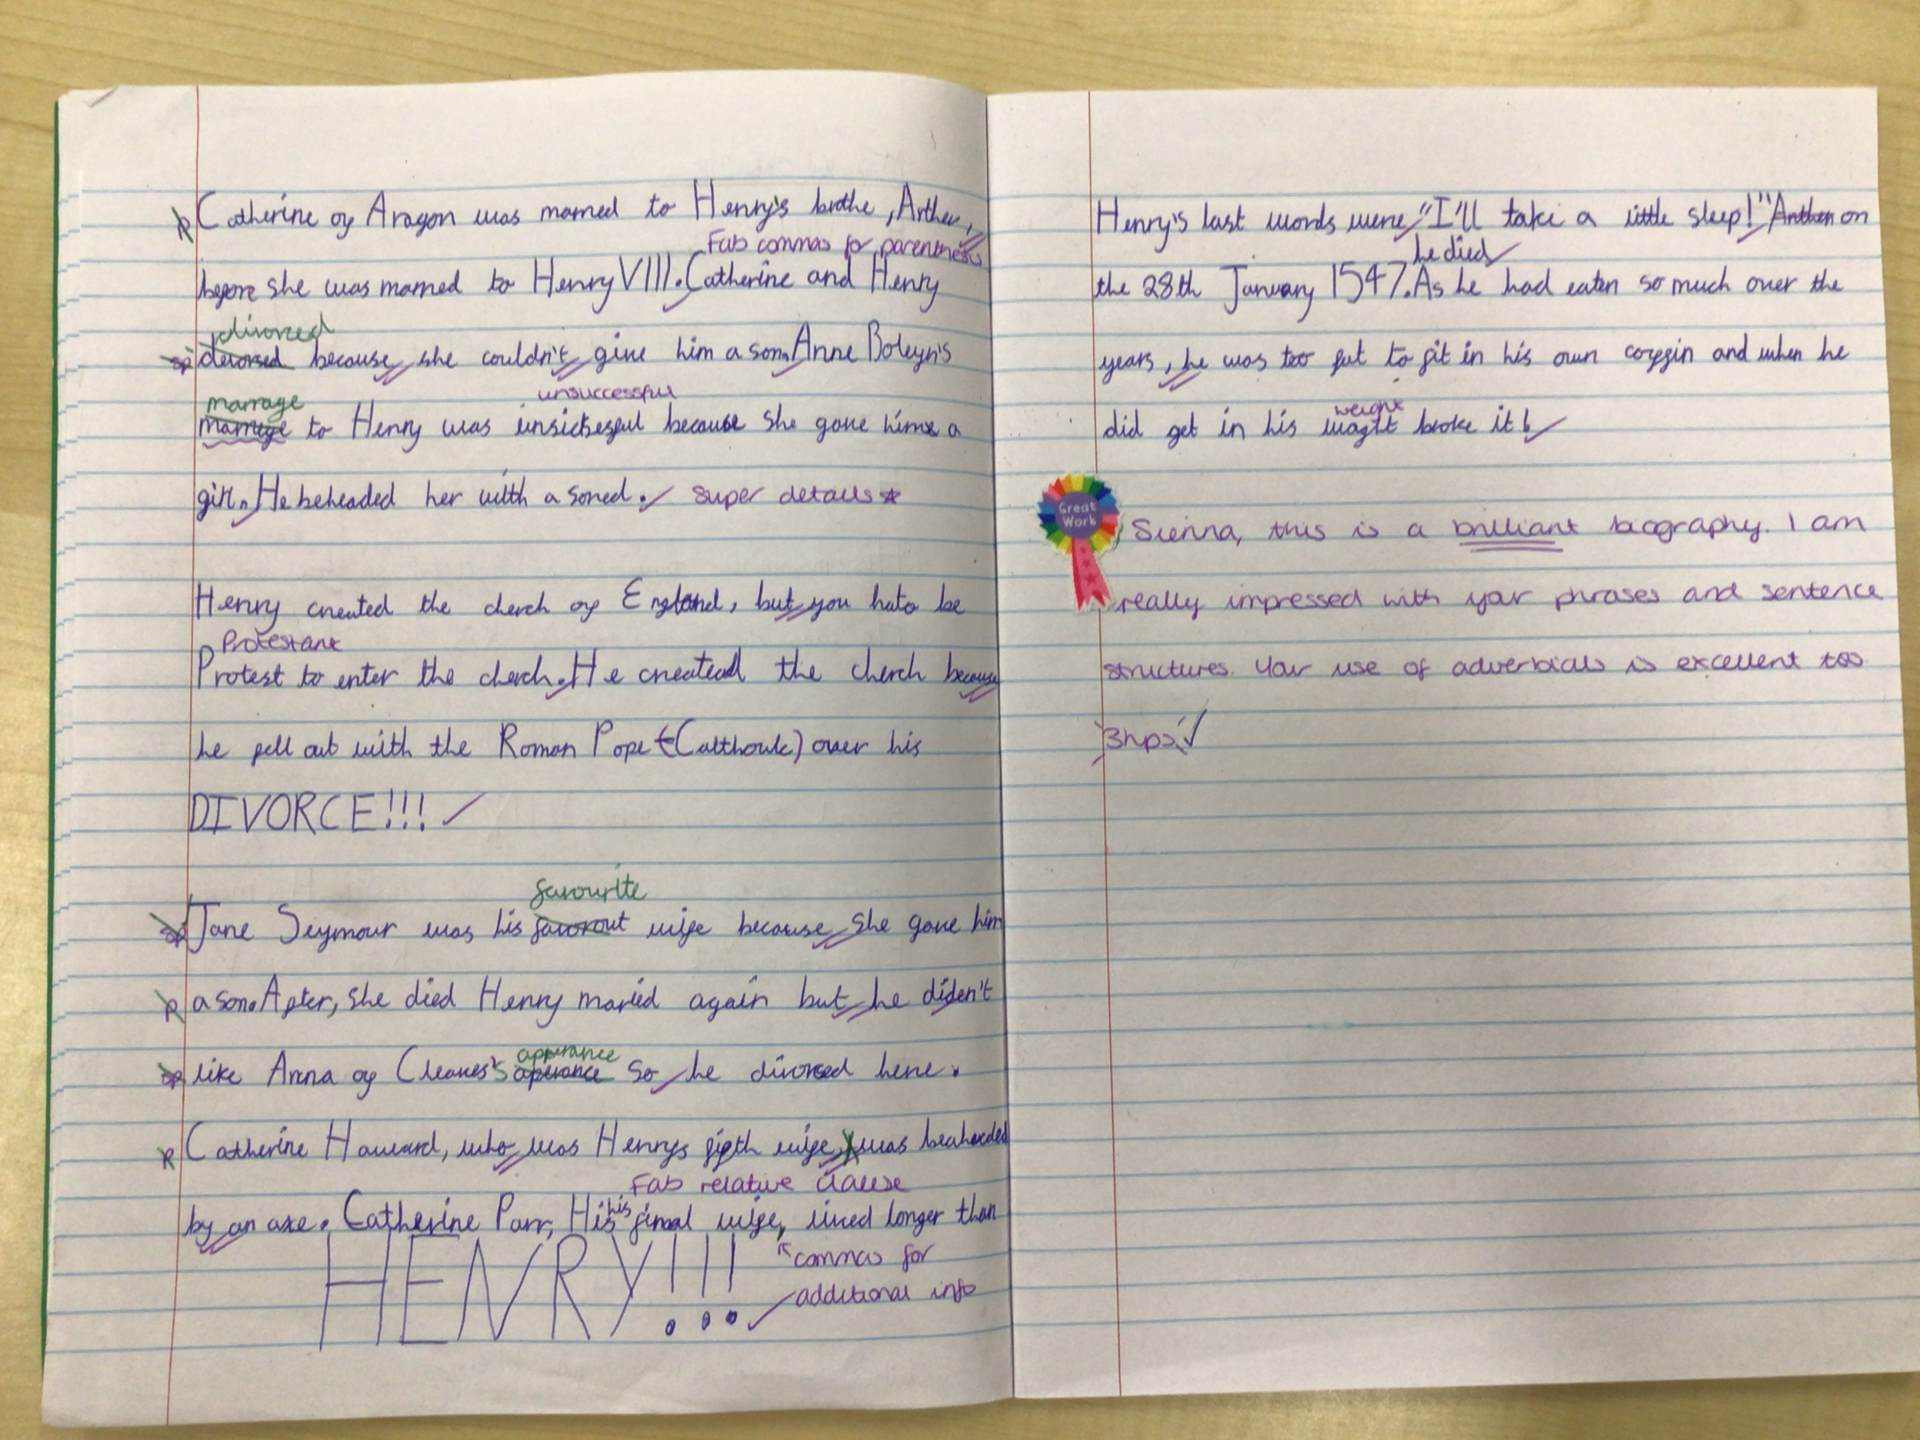 Catherine of Aragon was married to Henry's brothe, Arther,
Fab commas for parenthesis
before she was married to Henry VIII. Catherine and Henry
divorced
sp devorsed because she couldn't give him a son. Anne Boleyn's
marrage unsuccessful
marrige to Henry was unsickesful because she gave him a
girl. He beheaded her with a sored. super details
Henry created the cherch of England, but you hato be
Protestant
Protest to enter the cherch. He createad the cherch because
he fell out with the Roman Pope (Calthoulc) over his
DIVORCE!!!
favourite
sp Jane Seymour was his favorout wife because she gave him
a son. After, she died Henry maried again but he diden't
apperance
sp like Anna of Cleaves's aperance so he divorced here.
Catherine Howard, who was Henrys fifth wife, was beaheaded
Fab relative clause
by an axe. Catherine Parr, His his final wife, lived longer than
HENRY!!!
commas for
additional info
Henry's last words were, "I'll take a little sleep!" Arther on
he died
the 28th January 1547. As he had eaten so much over the
years, he was too fat to fit in his own coffin and when he
weight
did get in his waght broke it!
Great
Work
Sienna, this is a brilliant biography. I am
really impressed with your phrases and sentence
structures. Your use of adverbials is excellent too
3hps